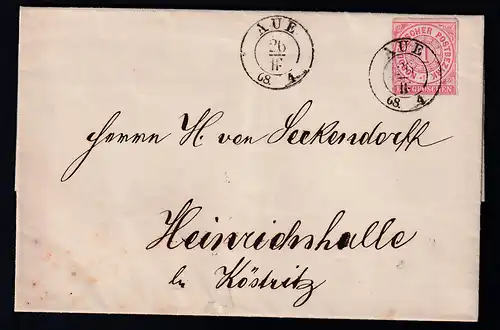 AUE
26
II
68. 4.
AUE
26
II
68. 4.
GROSCHEN
Herrn H. von Seckendorff
Heinrichshalle
b. Köstritz